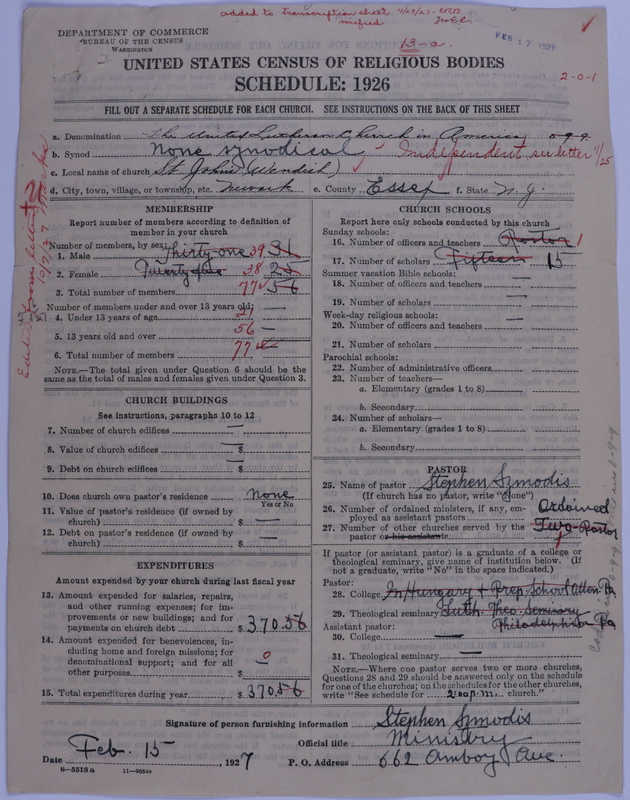 added to transcription sheet
verified
13-a.
FEB 17 1927
DEPARTMENT OF COMMERCE
BUREAU OF THE CENSUS
WASHINGTON
UNITED STATES CENSUS OF RELIGIOUS BODIES
SCHEDULE: 1926
2-0-1
FILL OUT A SEPARATE SCHEDULE FOR EACH CHURCH. SEE INSTRUCTIONS ON THE BACK OF THIS SHEET
a. Denomination The United Lutheran Church in America 0-9-9
b. Synod None synodical Independent
c. Local name of church St. Johns (Wendish)
d. City, town, village, or township, etc. Newark e. County Essex f. State N. J.
MEMBERSHIP
Report number of members according to definition of
member in your church
Number of members, by sex:
1. Male Thirty one 39 31
2. Female Twenty five 38 25
3. Total number of members 77 56
Number of members under and over 13 years old:
4. Under 13 years of age 21
5. 13 years old and over 56
6. Total number of members 77
NOTE.—The total given under Question 6 should be the
same as the total of males and females given under Question 3.
CHURCH BUILDINGS
See instructions, paragraphs 10 to 12
7. Number of church edifices —
8. Value of church edifices $ —
9. Debt on church edifices $ —
10. Does church own pastor's residence None
Yes or No
11. Value of pastor's residence (if owned by
church) $ —
12. Debt on pastor's residence (if owned by
church) $ —
EXPENDITURES
Amount expended by your church during last fiscal year
13. Amount expended for salaries, repairs,
and other running expenses; for im-
provements or new buildings; and for
payments on church debt $ 370.56
14. Amount expended for benevolences, in-
cluding home and foreign missions; for
denominational support; and for all
other purposes $ 0 —
15. Total expenditures during year $ 370.56
CHURCH SCHOOLS
Report here only schools conducted by this church
Sunday schools:
16. Number of officers and teachers Pastor 1
17. Number of scholars Fifteen 15
Summer vacation Bible schools:
18. Number of officers and teachers —
19. Number of scholars —
Week-day religious schools:
20. Number of officers and teachers —
21. Number of scholars —
Parochial schools:
22. Number of administrative officers
23. Number of teachers—
a. Elementary (grades 1 to 8)
b. Secondary
24. Number of scholars—
a. Elementary (grades 1 to 8)
b. Secondary
PASTOR
25. Name of pastor Stephen Szmodis
(If church has no pastor, write "None")
26. Number of ordained ministers, if any, em-
ployed as assistant pastors Ordained
27. Number of other churches served by the
pastor or his assistants Two-Pastor
If pastor (or assistant pastor) is a graduate of a college or
theological seminary, give name of institution below. (If
not a graduate, write "No" in the space indicated.)
Pastor:
28. College In Hungary + Prep. School Pa
29. Theological seminary Luth. Theo. Seminary
Philadelphia Pa
Assistant pastor:
30. College —
31. Theological seminary —
NOTE.—Where one pastor serves two or more churches,
Questions 28 and 29 should be answered only on the schedule
for one of the churches; on the schedules for the other churches,
write "See schedule for church."
Signature of person furnishing information Stephen Szmodis
Official title Ministry
Date Feb. 15, 1927 P. O. Address 662 Amboy Ave
8-5518a 11-9054